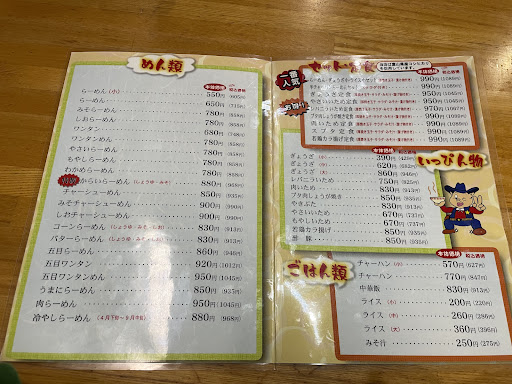 めん類
本体価格 税込価格
らーめん（小） 550円（605円）
らーめん 650円（715円）
みそらーめん 780円（858円）
しおらーめん 680円（748円）
ワンタン 680円（748円）
ワンタンめん 780円（858円）
やさいらーめん 780円（858円）
もやしらーめん 780円（858円）
わかめらーめん 780円（858円）
からいらーめん（しょうゆ・みそ） 880円（968円）
チャーシューめん 850円（935円）
みそチャーシューめん 900円（990円）
しおチャーシューめん 900円（990円）
コーンらーめん（しょうゆ・みそ・しお） 830円（913円）
バターらーめん（しょうゆ・みそ・しお） 830円（913円）
五目らーめん 860円（946円）
五目ワンタン 920円（1012円）
五目ワンタンめん 950円（1045円）
うまにらーめん 850円（935円）
肉らーめん 950円（1045円）
冷やしらーめん（4月下旬〜9月中旬） 880円（968円）
セット定食
一番人気
本体価格 税込価格
990円（1089円）
990円（1089円）
ぎょうざ定食 950円（1045円）
やさいいため定食 950円（1045円）
970円（1067円）
肉いため定食 990円（1089円）
スブタ定食 990円（1089円）
若鶏カラ揚げ定食 990円（1089円）
いっぴん物
本体価格 税込価格
ぎょうざ（小） 390円（429円）
ぎょうざ 620円
ぎょうざ（大） 860円
レバニラいため 750円（825円）
肉いため 830円（913円）
ブタ肉しょうが焼き 850円（935円）
やきぶた 830円（913円）
やさいいため 670円（737円）
もやしいため 670円（737円）
若鶏カラ揚げ 850円（935円）
酢豚 850円（935円）
ごはん類
本体価格 税込価格
チャーハン（小） 570円（627円）
チャーハン 770円（847円）
中華飯 830円（913円）
ライス（小） 200円（220円）
ライス（中） 260円（286円）
ライス（大） 360円（396円）
みそ汁 250円（275円）